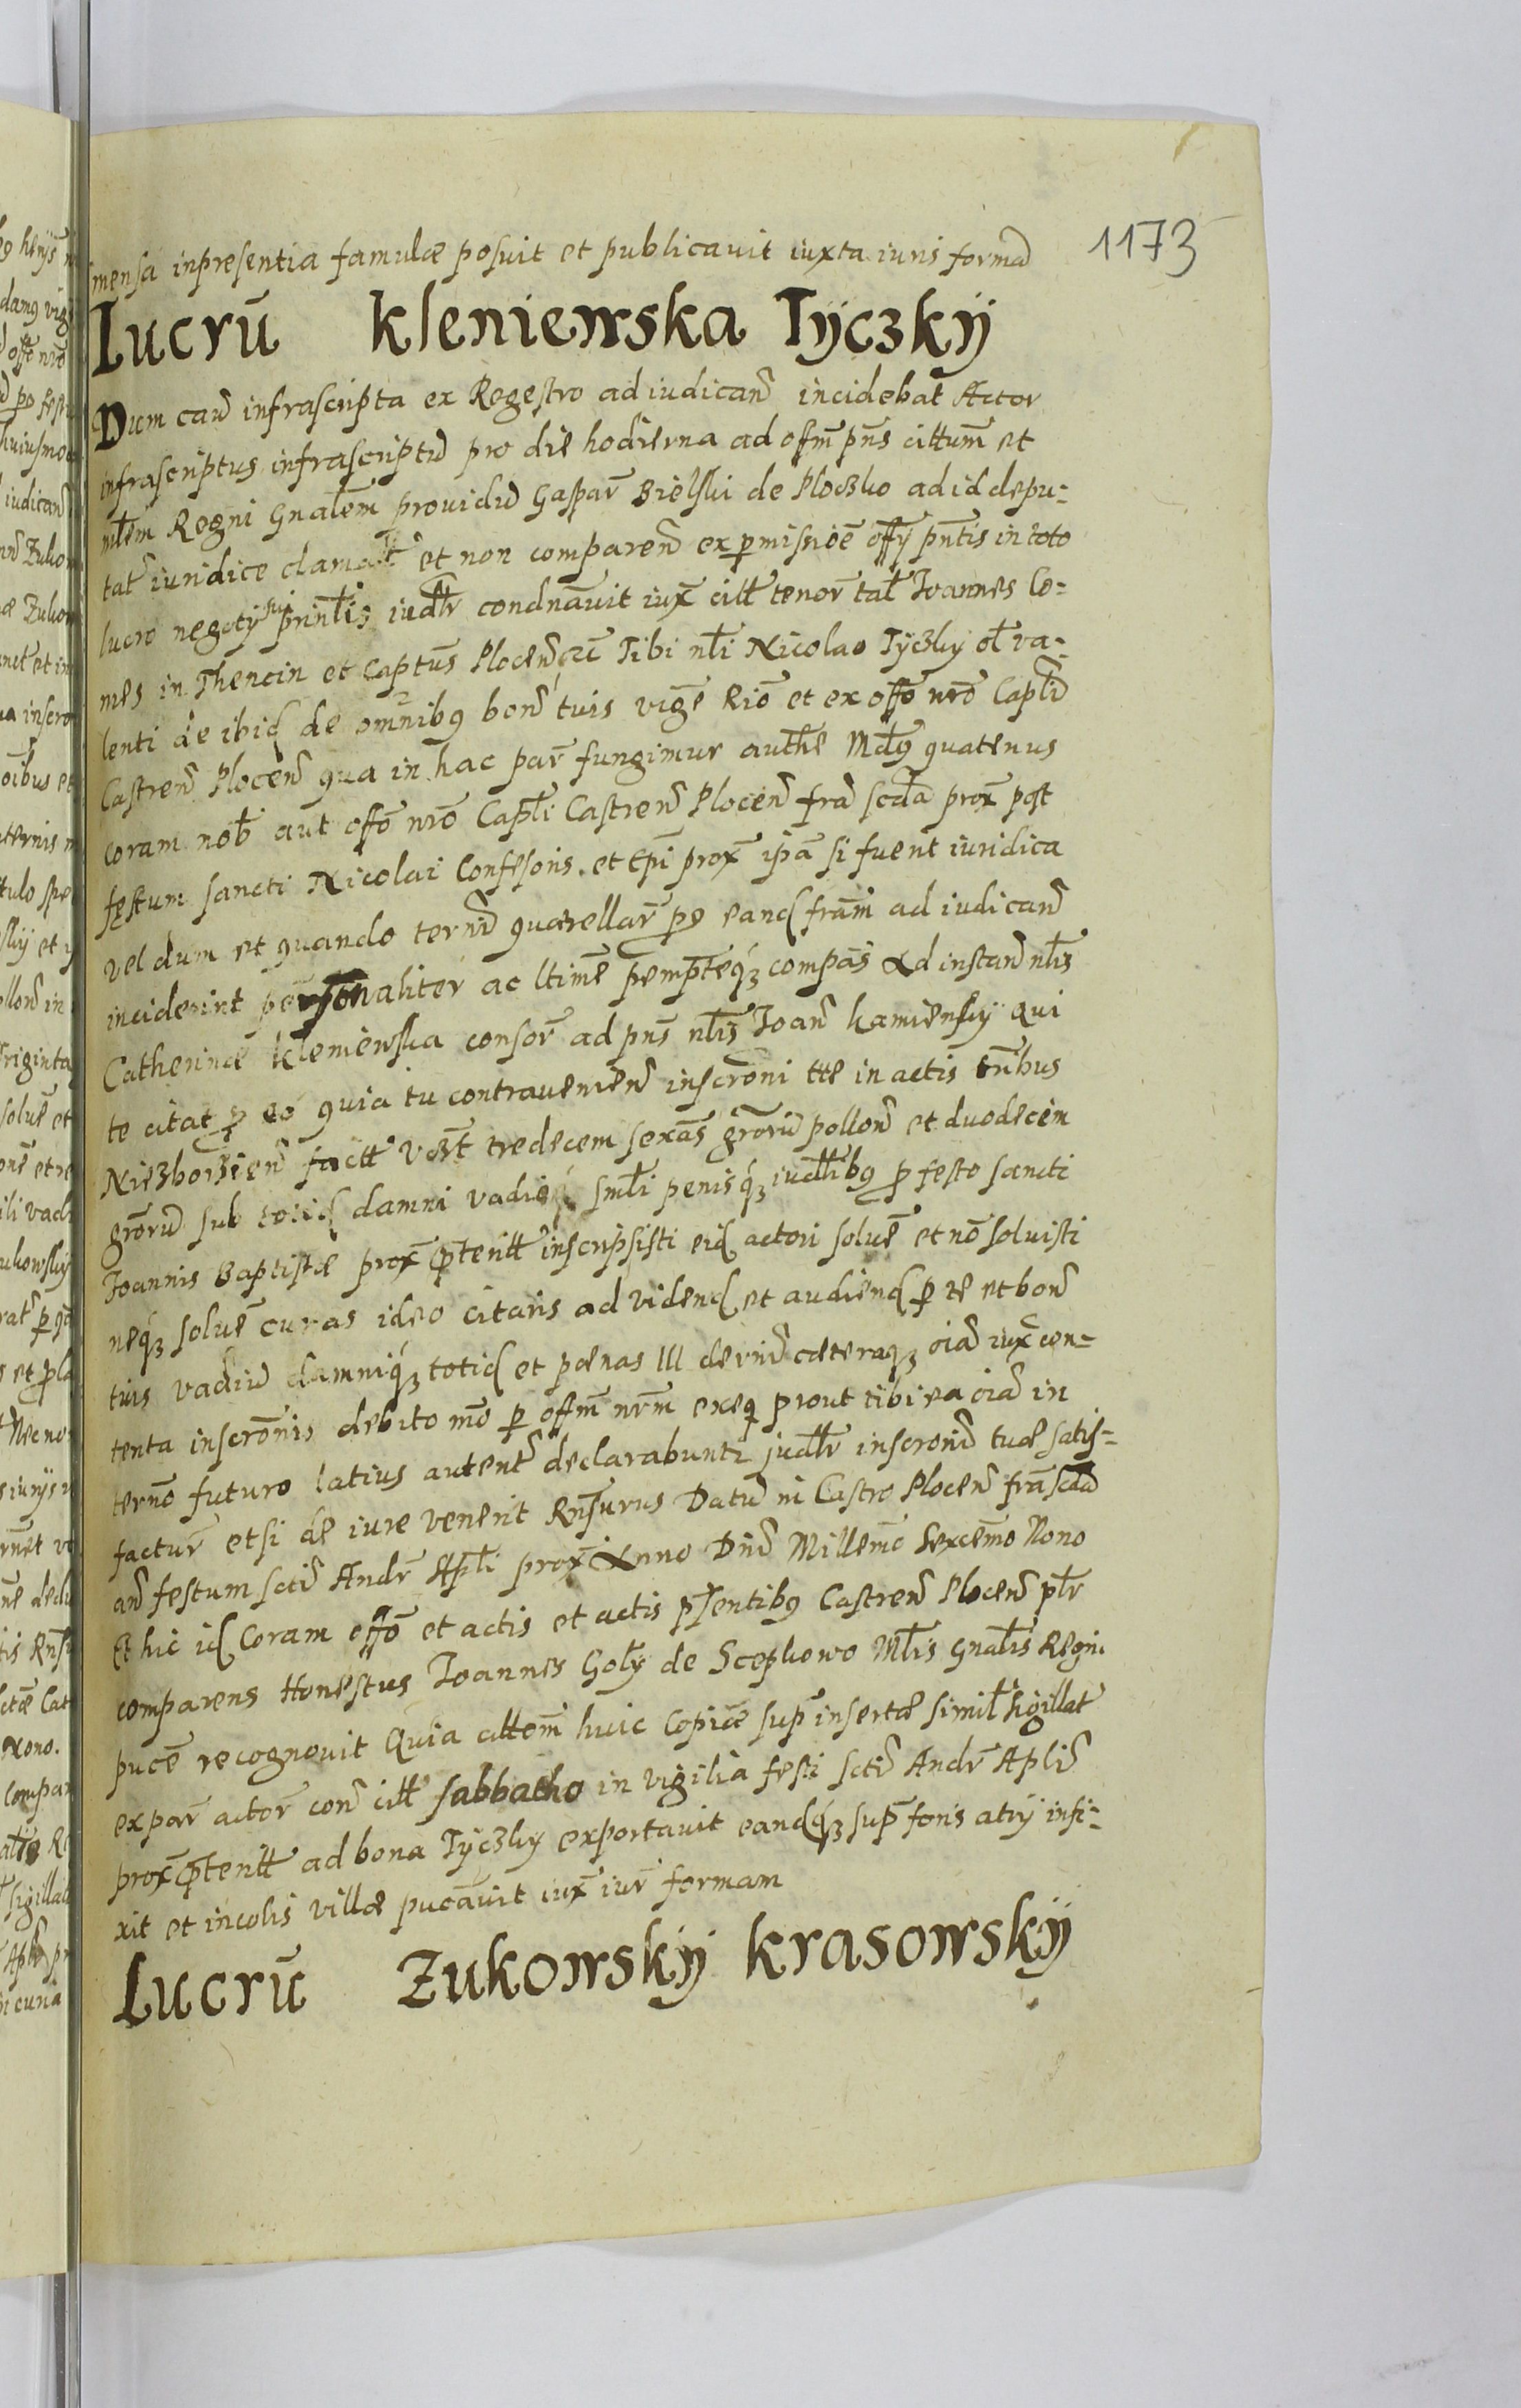 1173
mensa in presentia famulæ posuit et publicavit iuxta iuris formā
Lucrū Kleniewska Tÿczkÿ
Dum cau͂ infrascripta ex Regestro ad iudican͂ incidebat Actor
infrascriptus infrascriptū pro die hodierna ad offm̄ pn̄s cittum̄ et
mlem̄ Regni Gn̄alem̄ providū Gaspar͂ Bielski de Ploczko ad id depu⸗
tat͂ iuridice clamat͂ et non comparen͂ ex p̱missioē offÿ pn̄tis in toto
lucro negotÿ sui prin͞lis iudl͞r condn̄avit iux͂ citt͂ tenor͂ tal͂ Joannes Co⸗
mes in Thencin et Captn̄s Plocen͂ qz Tibi nl͞i Nicolao Tÿczky ol͂ va⸗
lenti de ibid de omnibꝰ bon͂ tuis vige͂ Rio͂ et ex offo͂ nr̄o Capl͞i
Castren͂ Plocen͂ qua in hac par͂ fungimur authe͂ Md͞ꝰ quatenus
coram nob͂ aut offo͂ nr̄o Capl͞i Castren͂ Plocen͂ fr̄a scd̄a prox͂ post
festum sancti Nicolai Confesoris et Epi͂ prox͂ ip̄a si fuerit iuridica
vel dum et quando tern̄i quærellar͂ po eand fram̄ ad iudican͂
inciderint personaliter ac ltime͂ pemp̄teq́ꝫ compas̄ Ad instan͂ nl͞is
Catherinæ Kleniewska consor͂ ad pn̄s nl͞is Joan͂ Kamiensky qui
te citat p̱ eo quia tu contravenien͂ inscro͂ni tte in actis trn͞bus
Niezborzien͂ factt͂ vbi͂ tredecem sexas͂ gror̄ū pollon͂ et duodecim
gror̄ū sub totid damni vadioq́ꝫ sml͞i penisq́ꝫ iudl͞ibꝰ p̱ festo sancti
Joannis Baptistæ prox͂ p̱teritt͂ inscripsisti eid actori solve͂ et no͂ solvisti
neq́ꝫ solve͂ curas ideo citaris ad vidend et audiend p̱ te et bon͂
tuis vadiū damniq́ꝫ totid et pœnas lll decerni͂ cæteraqꝫ oi͂a iux͂ con⸗
tenta inscro͂nis debito mo͂ p̱ offm̄ nrm̄ exeq prout tibi ea oi͂a in
terno͂ futuro latius autent͂ declarabuntr͂ judl͞r inscroni͂ tuæ satis⸗
factur͂ et si de iure venerit Rn͂surus Datū in Castro Plocen͂ fr̄a scd̄a
an͂ festum scti͂ Andr͂ Apl͞i prox͂ Anno Dn̄i Millem̄o Sexcem̄o Nono
Et hic id Coram offo͂ et actis et actis pr̄sentibꝰ Castren͂ Plocen͂ pl͞r
comparens Honestus Joannes Goly de Scepkowo Ml͞is Gn̄alis Regni
puce͂ recognovit Quia cittem̄ huic Copiæ sup͂ insertæ simil͂ sigillat͂
ex par͂ actor͂ con͂ citt͂ sabbatho in vigilia festi scti͂ Andr͂ Apl͞i
prox͂ p̱teritt͂ ad bona Tÿczky exportavit eandq́ꝫ sup͂ foris atrÿ infi⸗
xit et incolis villæ puca͂vit iux͂ iur͂ formam
Lucrū Zukowskÿ Krasowskÿ